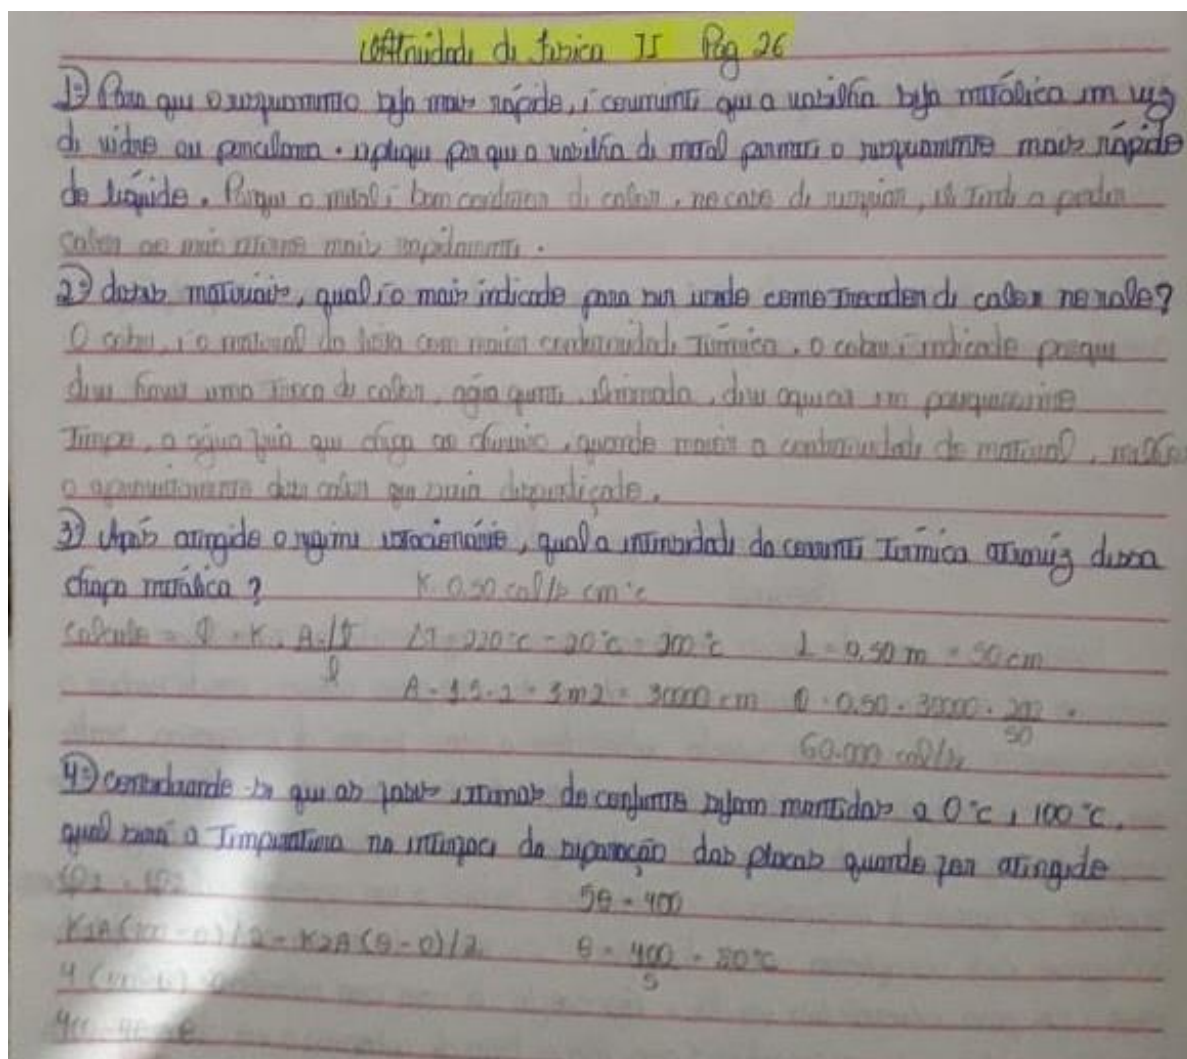 Atividade de física II Pág 26
1º) Para que o resfriamento seja mais rápido, é conveniente que a vasilha seja metálica em vez
de vidro ou porcelana. explique por que a vasilha de metal permite o mais rápido
do líquido. Porque o metal é bom condutor de calor, no caso de resfriar, ele tende a perder
calor ao meio externo mais rapidamente.
2º) desses materiais, qual é o mais indicado para ser usado como trocador de calor no ralo?
O cobre, é o material da lista com maior condutividade térmica, o cobre é indicado porque
deve haver uma troca de calor, água quente, eliminada, deve aquecer em
Tempo, a água fria que chega ao chuveiro, quando maior a condutividade do material, melhor
o aproveitamento desse calor que seria desperdiçado.
3º) Após atingido o regime estacionário, qual a intensidade da corrente Térmica através dessa
chapa metálica? K = 0,50 cal/s cm °c
calculo = K . A ΔT = 220°c - 20°c = 200°c = 0,50 m = 50 cm
l
A = 1,5 . 2 = 3 m2 = 30000 cm = 0,50 . 30000 . 200 =
50
60.000 cal/s
4º) considerando-se que as faces externas do conjunto sejam mantidas a 0°c e 100°c,
qual será a Temperatura na interface da separação das placas quando for atingido
5θ = 400
K2A(θ-0)/2 θ = 400 = 80°c
5